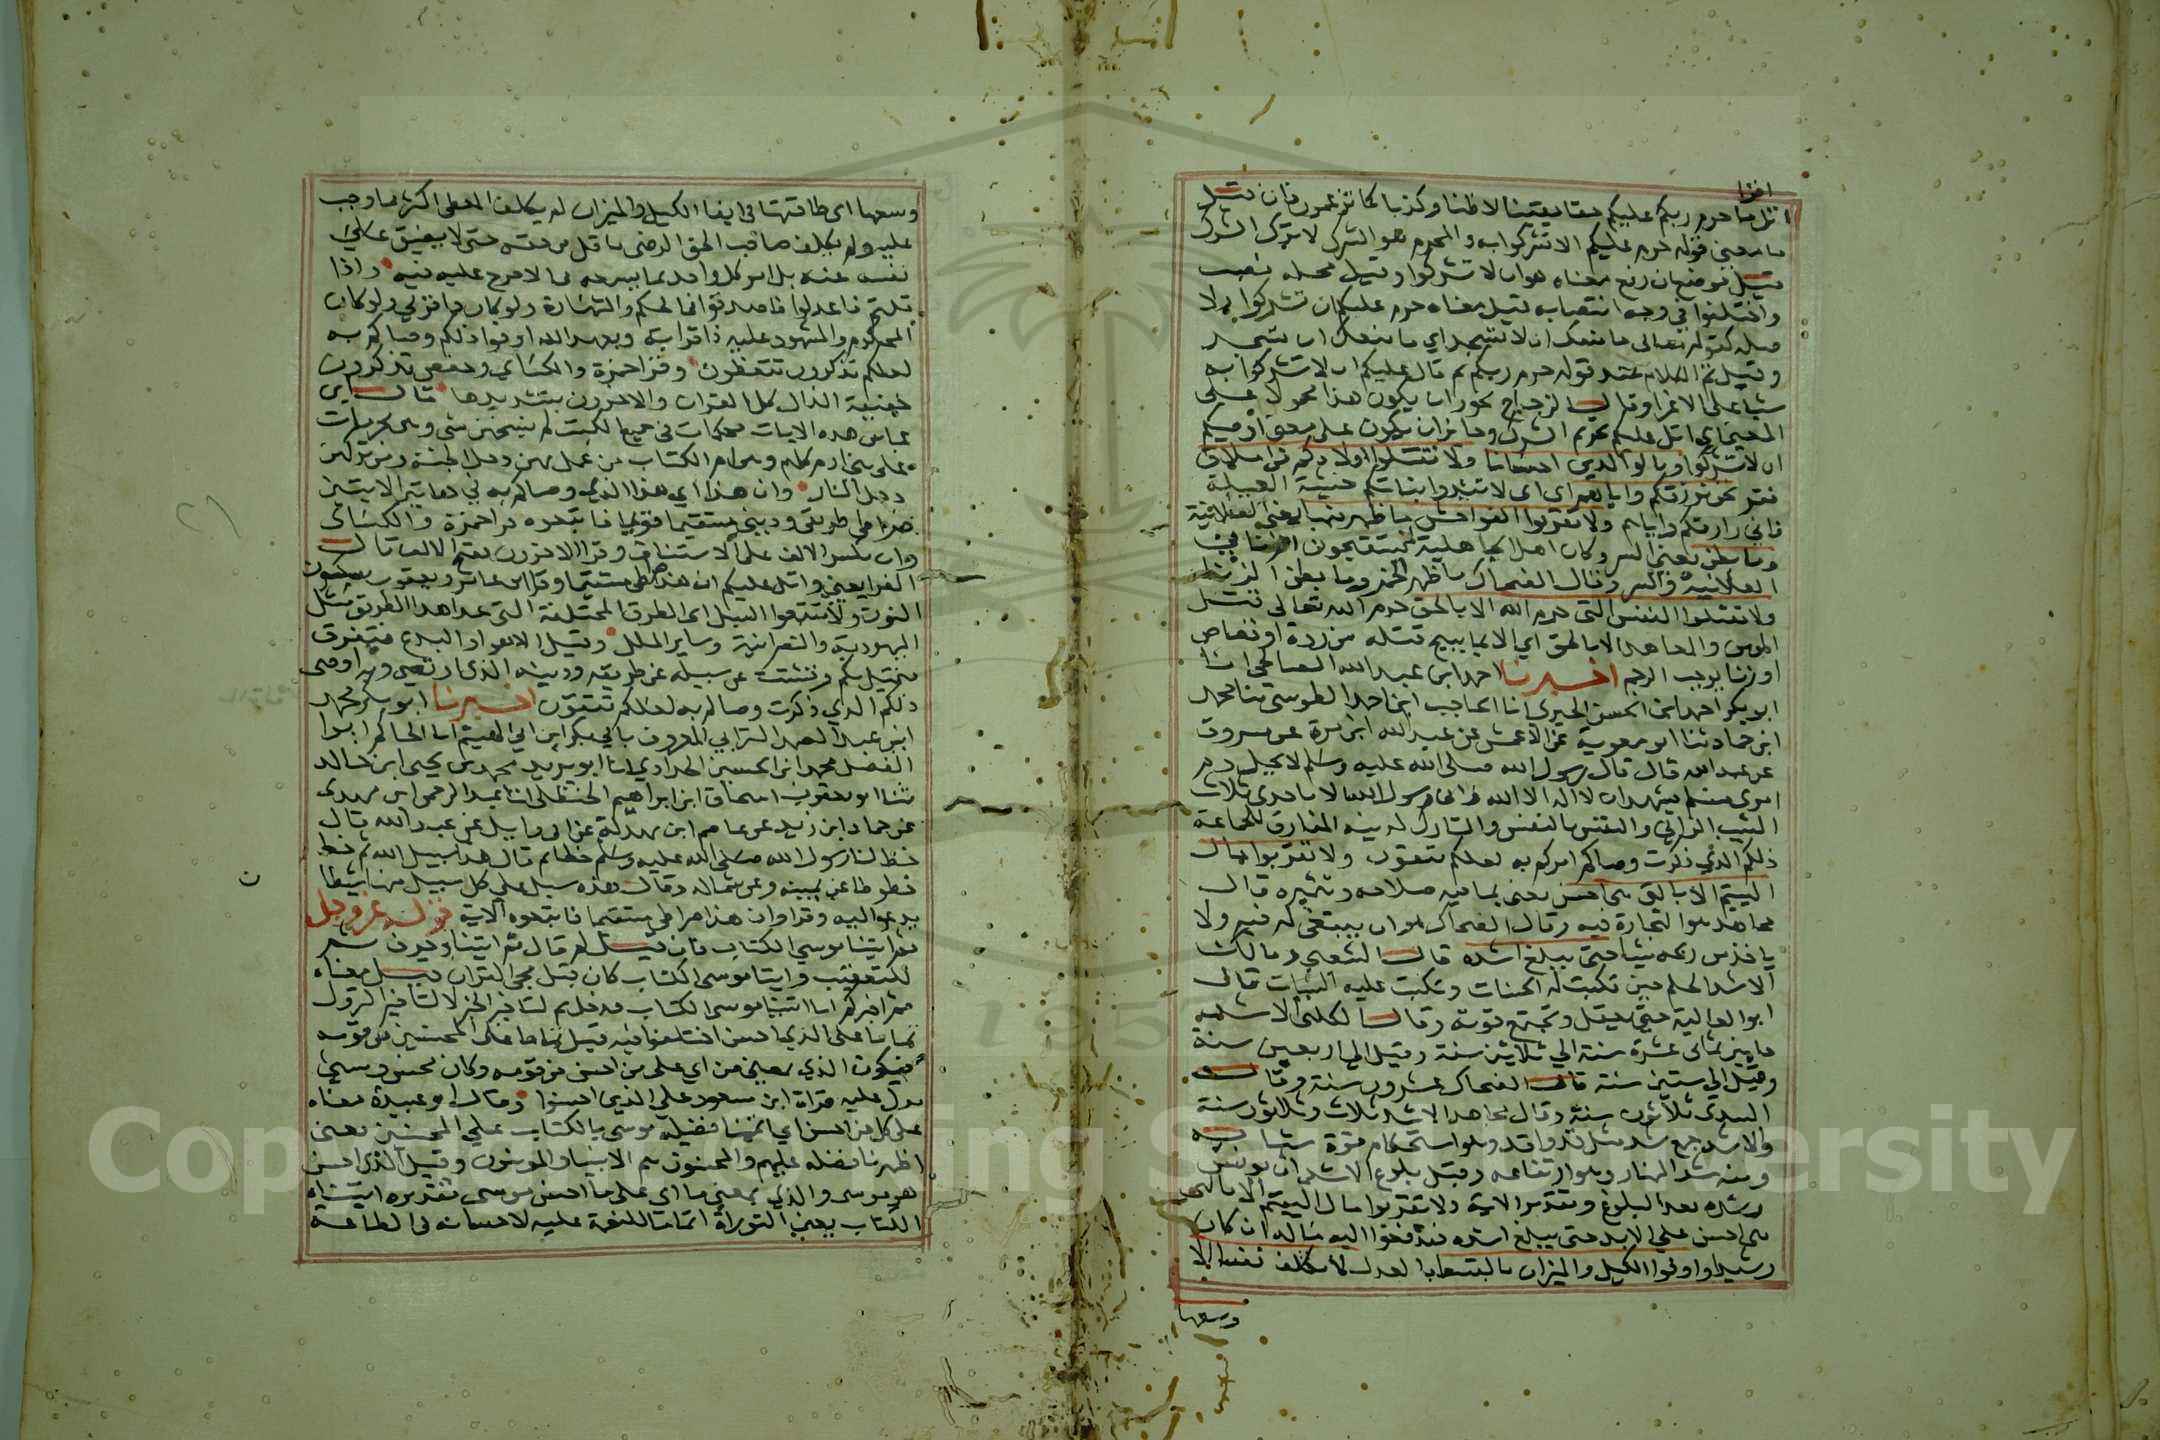 اقرا
اتل ما حرم ربكم عليكم حقا يقينا لا ظنا وكذبا كما تزعمون فان قيل
ما معنى قوله حرم عليكم الا تشركوا به والمحرم هو الشرك لا ترك الشرك
قيل موضع ان رفع معناه هو ان لا تشركوا وقيل محله نصب
واختلفوا في وجه انتصابه قيل معناه حرم عليكم ان تشركوا به ولا
صله كقوله تعالى ما منعك ان لا تسجد اي ما منعك ان تسجد
وقيل تم الكلام عند قوله حرم ربكم ثم قال عليكم ان لا تشركوا به
شيا على الاغرا وقال الزجاج يجوز ان يكون هذا محمولا على
المعنى اي اتل عليكم تحريم الشرك وجائز ان يكون على معنى اوصيكم
ان لا تشركوا وبالوالدين احسانا ولا تقتلوا اولادكم من املاق
فقر نحن نرزقكم واياهم اي لا تئدوا بناتكم خشية العيلة
فاني رازقكم واياهم ولا تقربوا الفواحش ما ظهر منها يعني العلانية
وما بطن يعني السر وكان اهل الجاهلية يستقبحون الزنا في
العلانية والسر وقال الضحاك ما ظهر الخمر وما بطن الزنا
ولا تقتلوا النفس التي حرم الله الا بالحق حرم الله تعالى قتل
المومن والمعاهد الا بالحق اي الا بما يبيح قتله من ردة او قصاص
او زنا يوجب الرجم اخبرنا احمد ابن عبد الله الصالحي انا
ابو بكر احمد ابن الحسن الحيري انا الحاجب ابن احمد الطوسي ثنا محمد
ابن حماد ثنا ابو معوية عن الاعمش عن عبد الله ابن مرة عن مسروق
عن عبد الله قال قال رسول الله صلى الله عليه وسلم لا يحل دم
امرئ مسلم يشهد ان لا اله الا الله واني رسول الله الا باحدى ثلاث
الثيب الزاني والنفس بالنفس والتارك لدينه المفارق للجماعة
ذلكم الذي ذكرت وصاكم امركم به لعلكم تعقلون ولا تقربوا مال
اليتيم الا بالتي هي احسن يعني بما فيه صلاحه وتثميره قال
مجاهد هو التجارة فيه وقال الضحاك هو ان يبتغي له فيه ولا
ياخذ من ربحه شيا حتى يبلغ اشده قال الشعبي ومالك
الاشد الحلم حين تكتب له الحسنات وتكتب عليه السيات قال
ابو العالية حتى يعقل وتجتمع قوته وقال الكلبي الاشد
ما بين ثماني عشرة سنة الى ثلاثين سنة وقيل الى اربعين سنة
وقيل الى ستين سنة قال الضحاك عشرون سنة وقال
السدي ثلاثون سنة وقال مجاهد الاشد ثلاث وثلاثون سنة
والاشد جمع شد مثل قد واقد وهو استحكام قوة شبابه
ومنه شد النهار وهو ارتفاعه وقيل بلوغ الاشد ان يونس
رشده بعد البلوغ وتقدير الاية ولا تقربوا مال اليتيم الا بالتي
هي احسن على الابد حتى يبلغ اشده فادفعوا اليه ماله ان كان
رشيدا واوفوا الكيل والميزان بالقسط بالعدل لا نكلف نفسا الا
وسعها
وسعها اي طاقتها في ايفا الكيل والميزان لم يكلف المعطي اكثر مما وجب
عليه ولم يكلف صاحب الحق الرضى باقل من حقه حتى لا يضيق على
نفسه عنه بل امر كل واحد بما يسعه مما لا حرج عليه فيه واذا
قلتم فاعدلوا فاصدقوا في الحكم والشهادة ولو كان ذا قربى ولو كان
المحكوم والمشهود عليه ذا قرابة وبعهد الله اوفوا ذلكم وصاكم به
لعلكم تذكرون تتعظون وقرا حمزة والكسائي وحفص تذكرون
خفيفة الذال كل القران والاخرون بتشديدها قال ابن
عباس هذه الايات محكمات في جميع الكتب لم ينسخهن شي وهن محرمات
على بني ادم كلهم وهن ام الكتاب من عمل بهن دخل الجنة ومن تركهن
دخل النار وان هذا اي هذا الذي وصاكم به في هاتين الايتين
صراطي طريقي وديني مستقيما قويما فاتبعوه قرا حمزة والكسائي
وان بكسر الالف على الاستيناف وقرا الاخرون بفتح الالف قال
الفرا يعني واتل عليكم ان هذا صراطي مستقيما وقرا ابن عامر ويعقوب بسكون
النون ولا تتبعوا السبل اي الطرق المختلفة التي عدا هذا الطريق مثل
اليهودية والنصرانية وساير الملل وقيل الاهوا والبدع فتفرق
فتميل بكم وتشتت عن سبيله عن طريقه ودينه الذي ارتضى وبه اوصى
ذلكم الذي ذكرت وصاكم به لعلكم تتقون اخبرنا ابو بكر محمد
ابن عبد الصمد الترابي المعروف بابي بكر ابن ابي الهيثم انا الحاكم ابو
الفضل محمد ابن الحسين الحدادي انا ابو يزيد محمد بن يحيى ابن خالد
ثنا ابو يعقوب اسحاق ابن ابراهيم الحنظلي انا عبد الرحمن ابن مهدي
عن حماد ابن زيد عن عاصم ابن بهدلة عن ابي وايل عن عبد الله قال
خط لنا رسول الله صلى الله عليه وسلم خطا ثم قال هذا سبيل الله ثم خط
خطوطا عن يمينه وعن شماله وقال هذه سبل على كل سبيل منها شيطان
يدعو اليه وقرا وان هذا صراطي مستقيما فاتبعوه الاية قوله عز وجل
ثم اتينا موسى الكتاب فان قيل لم قال ثم اتينا وحرف ثم
للتعقيب وايتا موسى الكتاب كان قبل مجي القران قيل معناه
ثم اخبركم انا اتينا موسى الكتاب فدخل ثم لتاخير الخبر لا لتاخير النزول
تماما على الذي احسن اختلفوا فيه قيل تماما على المحسنين من قومه
فيكون الذي بمعنى من اي على من احسن من قومه وكان محسن ومسيئ
يدل عليه قراة ابن مسعود على الذين احسنوا وقال ابو عبيدة معناه
على كل من احسن اي اتممنا فضيلة موسى بالكتاب على المحسنين يعني
اظهرنا فضله عليهم والمحسنون هم الانبيا والمومنون وقيل الذي احسن
هو موسى والذي بمعنى ما اي على ما احسن موسى تقديره اتيناه
الكتاب يعني التوراة اتماما للنعمة عليه لاحسانه في الطاعة
Copyright © King Saud University
1957